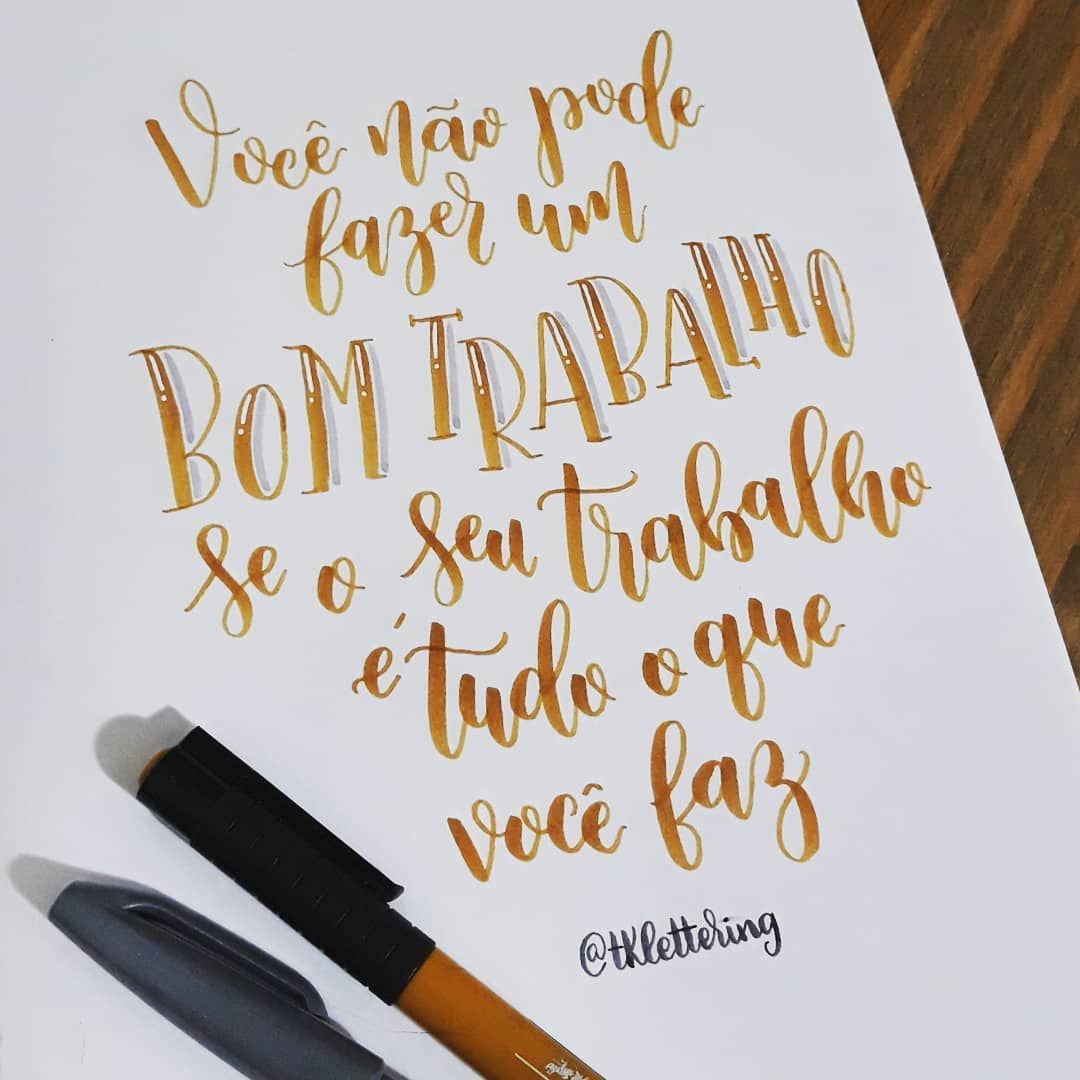 Você não pode
fazer um
BOM TRABALHO
se o seu trabalho
é tudo o que
você faz
@tklettering